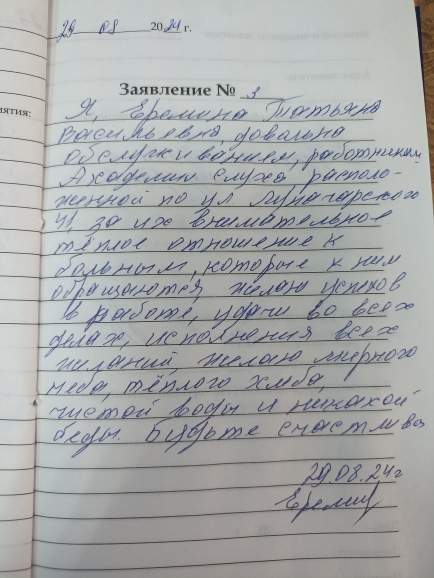 29 08 2024 г.
Заявление № 3
ятия:
Я, Еремина Татьяна
Васильевна, довольна
обслуживанием, работниками
Академии слуха располо-
женной по ул Луначарского
41, за их внимательное
тёплое отношение к
больным, которые к ним
обращаются, желаю успехов
в работе, удачи во всех
делах, исполнения всех
желаний, желаю мирного
неба, тёплого хлеба,
чистой воды и никакой
беды. Будьте счастливы
29.08.24г